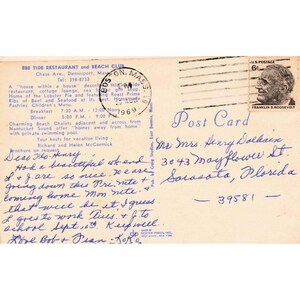 EBB TIDE RESTAURANT and BEACH CLUB
Chase Ave., Dennisport, Mass.
Tel: 398-8733
A "house within a house"
restaurant, cottage lounge, sea
Home of the Lobster Pie and Roast Prime
Ribs of Beef and Seafood at its
Pastries, Children's Menu.
Breakfast 7:30 A.M.
Dinner 5:00 P.M. - 9:00
Charming Beach Chalets adjacent and across from
Nantucket Sound offer "homes away from home"
with private swimming pool.
Your hosts for vacation living
Richard and Helen McCormick
BOSTON, MASS.
PM
1969
U.S. POSTAGE
6¢
FRANKLIN D. ROOSEVELT
Post Card
Mr. Mrs Henry
3043 Mayflower St
Sarasota, Florida
- 39581 -
Dear Mo-Henry,
Had a beautiful wk and
L & I are so nice. We are
going down this Fri. Nite &
coming home Mon. Nite.
that will be it, I guess.
L goes to work Tues. & J to
school Sept 10th. Keep well.
Love Bob & Fran